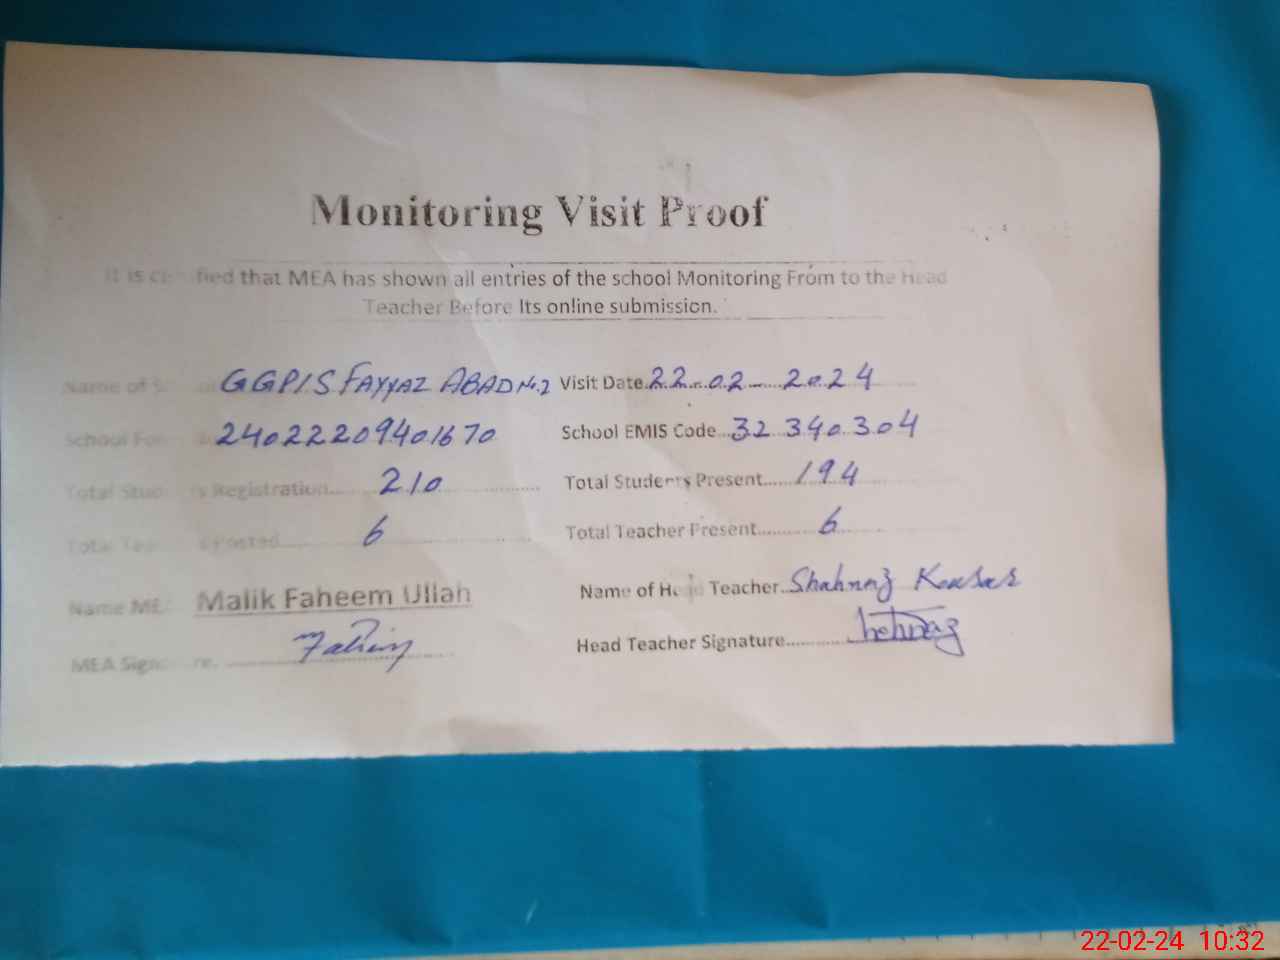 Monitoring Visit Proof
It is certified that MEA has shown all entries of the school Monitoring From to the Head
Teacher Before Its online submission.
Name of S GGPIS FAYYAZ ABAD No.2 Visit Date 22-02-2024
School For 2402220940 1670 School EMIS Code 32340304
Total Students Registration 210 Total Students Present 194
Total Tea Posted 6 Total Teacher Present 6
Name ME Malik Faheem Ullah Name of Head Teacher Shahnaz Kousar
MEA Signature Faheem Head Teacher Signature Shehnaz
22-02-24 10:32